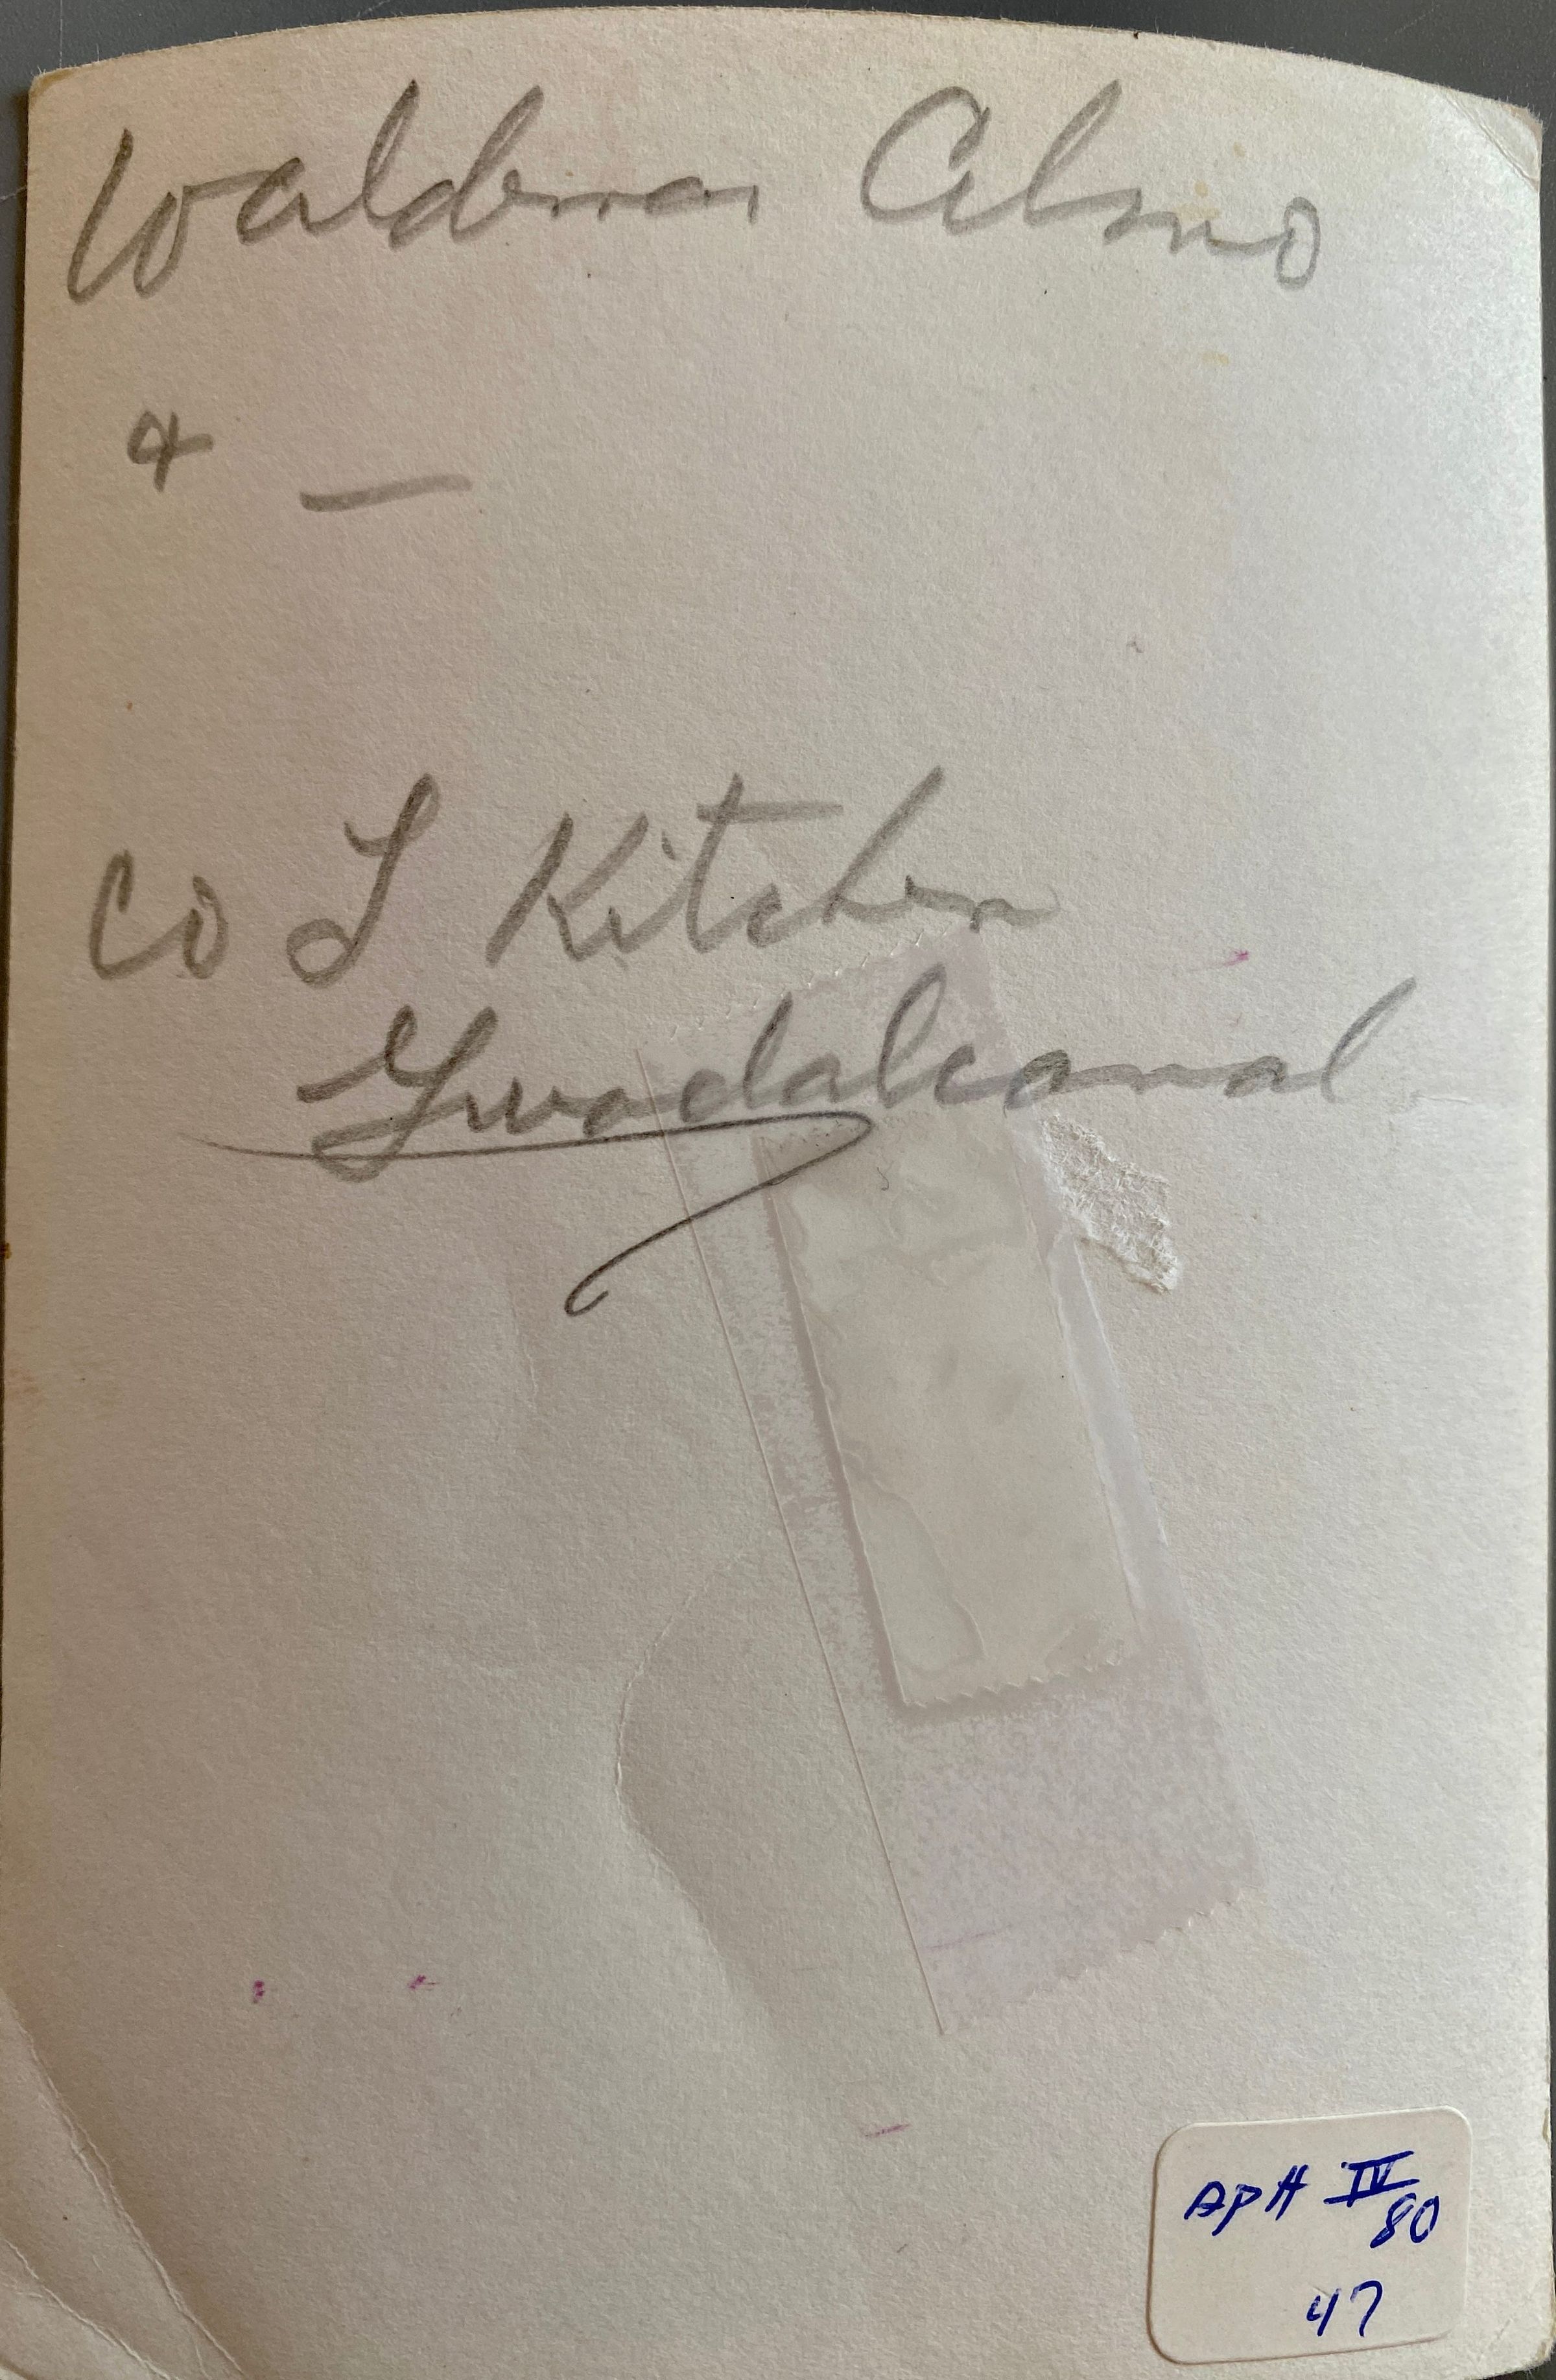 Waldemar Almo
& —
Co I Kitchen
Guadalcanal
APH IV/80
47